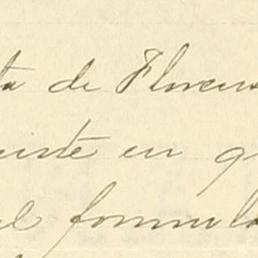 ta de Floren
iste en q
el formula